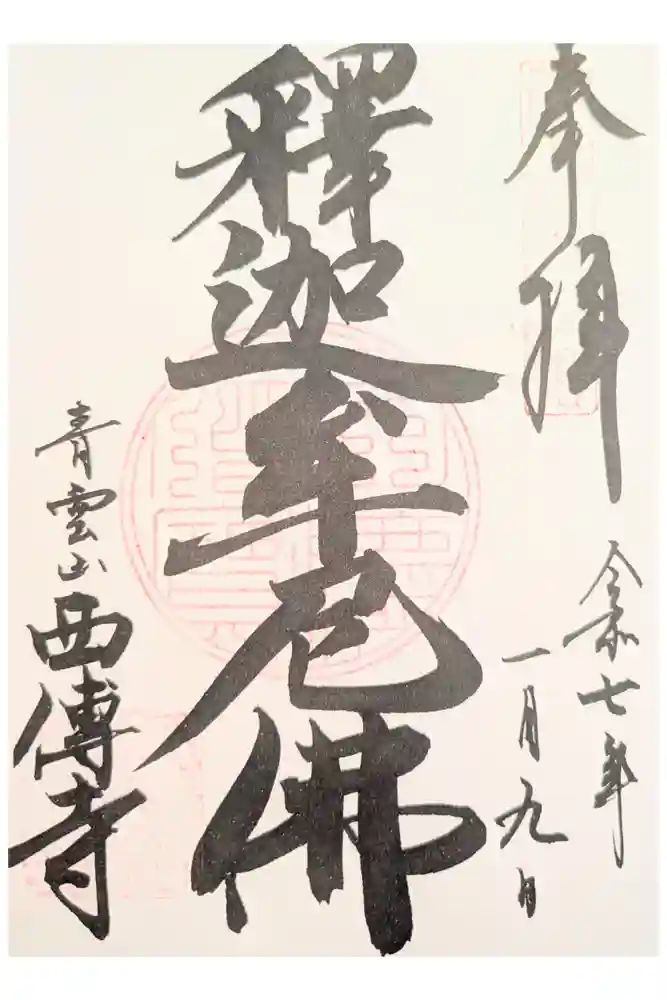 奉拜
令和七年
一月九日
釋迦牟尼佛
青雲山
西傳寺